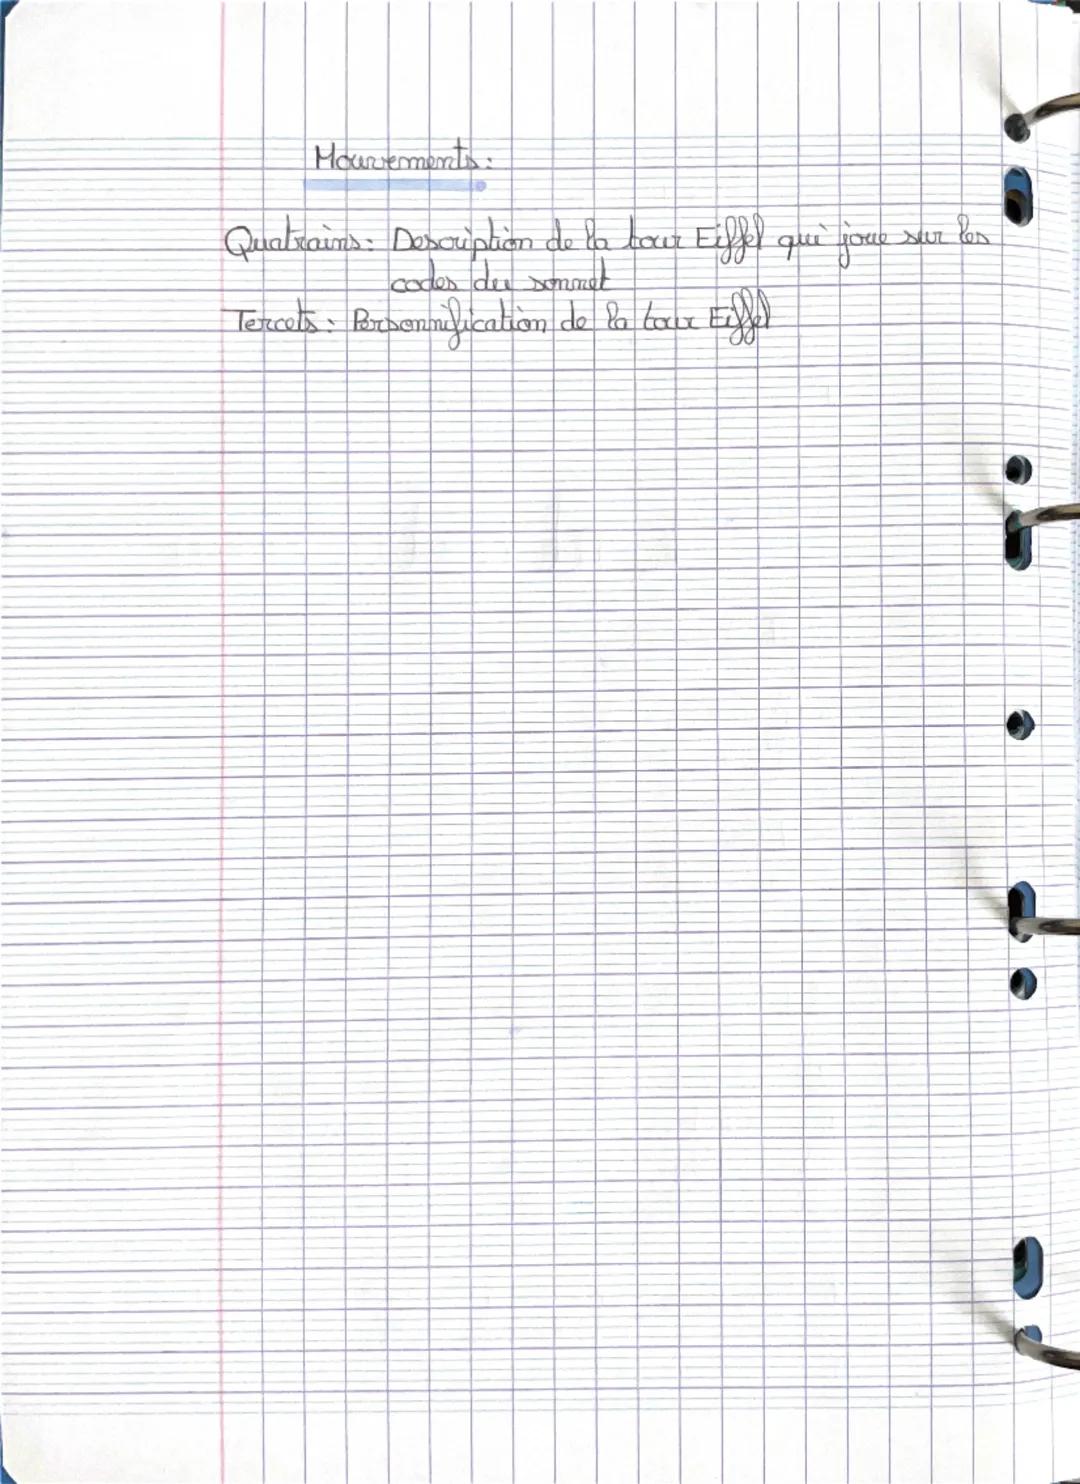 Mouvements :
Quatrains : Description de la tour Eiffel qui joue sur les
codes du sonnet
Tercets : Personnification de la tour Eiffel